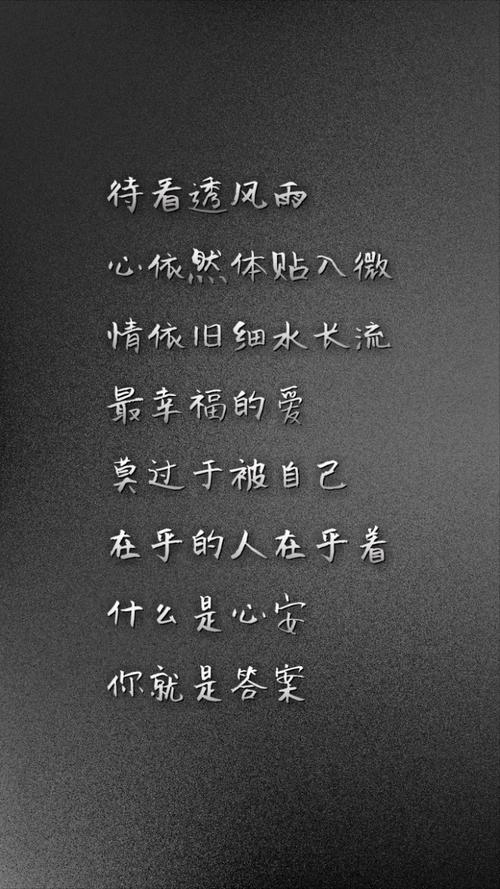 待看透风雨
心依然体贴入微
情依旧细水长流
最幸福的爱
莫过于被自己
在乎的人在乎着
什么是心安
你就是答案